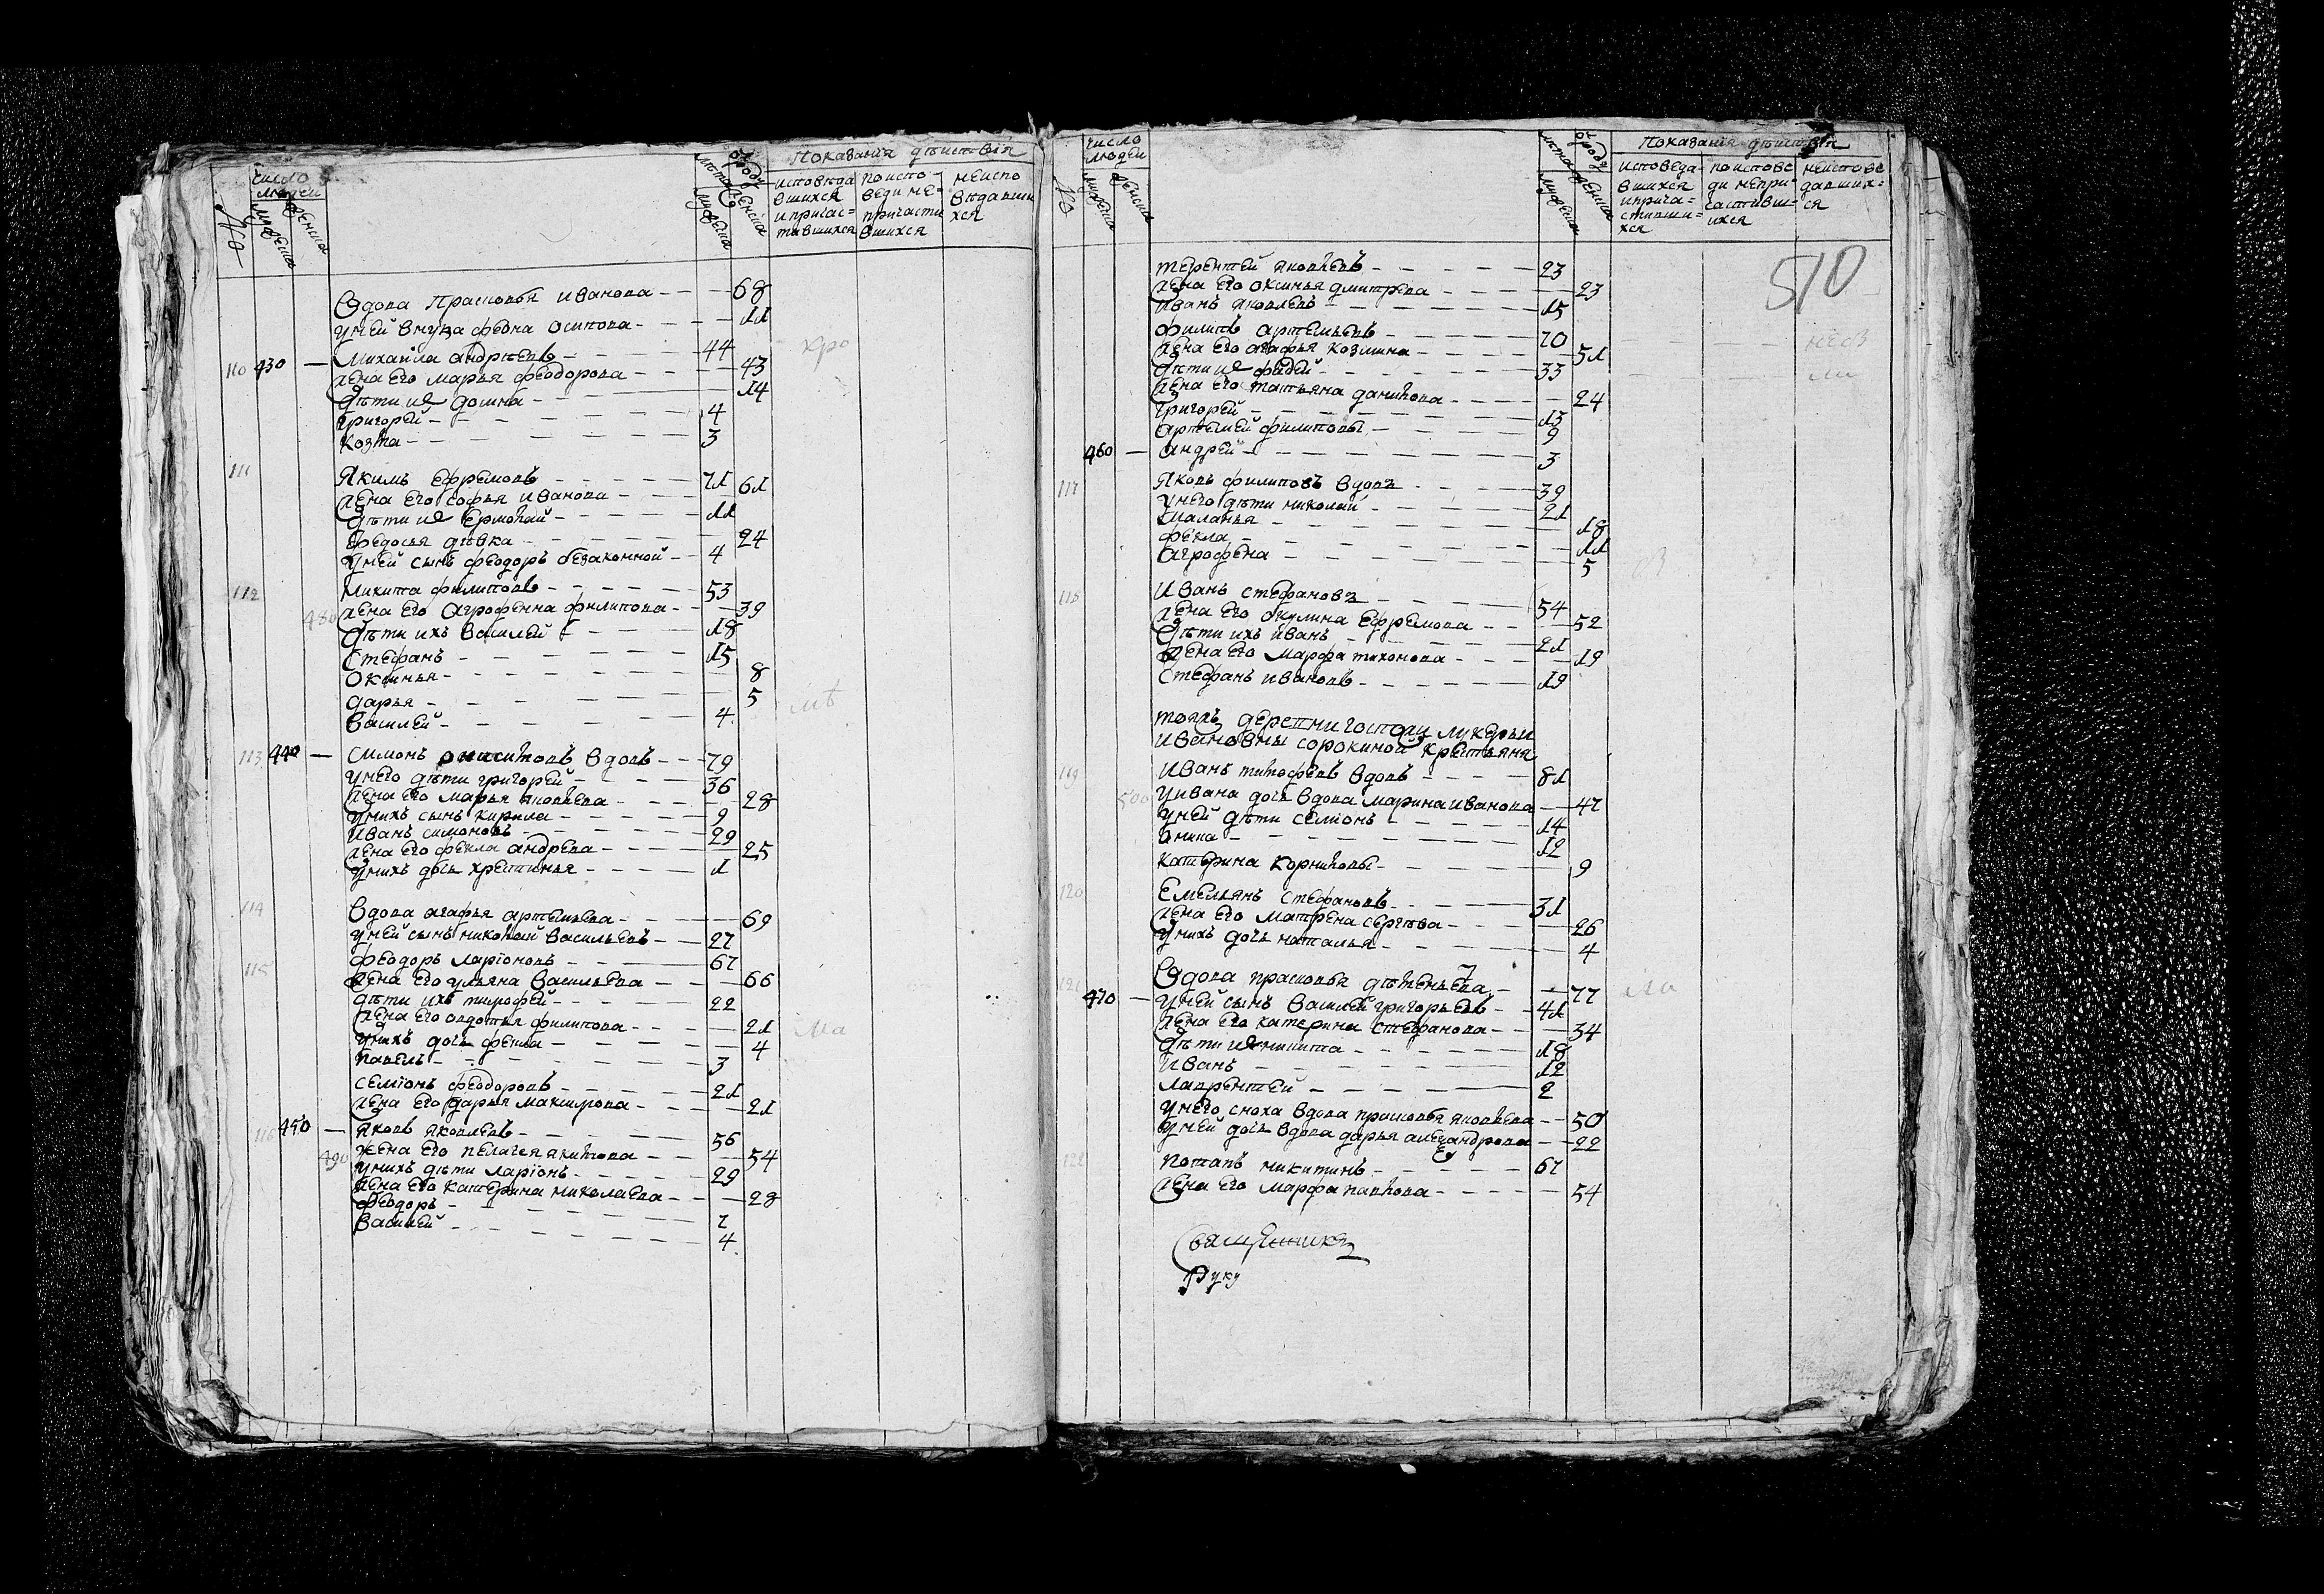 число людей
мужеска
женска
лѣта от роду
мужеска
женска
Показанія дѣиствія
исповѣдавшихся и причастившихся
по исповеди не причастившихся
не исповѣдавшихся
Вдова Прасковья Иванова — 68
У ней внука федна осипова — 11
110 430 — Михаила андрѣевъ — 44
жена его марья феодорова — 43
дѣти их домна — 14
григорей — 4
козма — 3
111 Якимъ Ефремовъ — 71
жена его софья иванова — 61
дѣти их Ермолай — 11
Федосья дѣвка — 24
у ней сынъ феодоръ безаконной — 4
112 Микита филиповъ — 53
480 жена его Агрофенна филипова — 39
дѣти ихъ василей — 18
Стефанъ — 15
Оксинья — 8
дарья — 5
Василей — 4
113 440 — Симонъ вдовъ — 79
у него дѣти григорей — 36
жена его марья яковлева — 28
у нихъ сынъ кирила — 9
Иванъ симоновъ — 29
жена его фекла андрѣева — 25
у нихъ дочь хрестинья — 1
114 Вдова агафья артемьева — 69
у ней сынъ николай васильевъ — 27
115 феодоръ ларіоновъ — 67
жена его ульяна васильева — 66
дѣти ихъ тимофей — 22
жена его авдотья филипова — 21
у нихъ дочь фекла — 4
павелъ — 3
семіонъ феодоровъ — 21
жена его дарья максимова — 21
116 450 — яковъ яковлевъ — 56
490 жена его пелагея якимова — 54
у нихъ дѣти ларіонъ — 29
жена его катерина николаева — 28
Феодоръ — 7
василей — 4
число людей
мужеска
женска
лѣта от роду
мужеска
женска
Показанія дѣиствія
исповедавшихся и причастившихся
по исповеди не причастившихся
не исповедавшихся
510
терентей яковлевъ — 23
жена его оксинья дмитрева — 23
иванъ яковлевъ — 15
филипъ артемьевъ — 70
жена его агафья козмина — 51
дѣти их фадей — 33
жена его татьяна данилова — 24
григорей — 13
артемей филиповы — 9
460 — андрей — 3
117 яковъ филиповъ вдовъ — 39
у него дѣти николай — 21
маланья — 18
фекла — 11
агрофена — 5
118 Иванъ стефановъ — 54
жена его окулина Ефремова — 52
дѣти ихъ иванъ — 21
жена его марфа тихонова — 19
Стефанъ ивановъ — 19
тояжъ деревни госпожи лукерьи
ивановны сорокиной крестьяня
119 Иванъ тимофеевъ вдовъ — 81
500 у ивана дочь вдова марина иванова — 47
у ней дѣти семіонъ — 14
аника — 12
катерина корниловы — 9
120 Емельянъ стефановъ — 31
жена его матрена сергѣева — 26
у нихъ дочь наталья — 4
121 Вдова прасковья — 77
470 — у ней сынъ василей григорьевъ — 41
жена его катерина стефанова — 34
дѣти их никита — 18
Иванъ — 12
лаврентей — 2
у него сноха вдова прасковья яковлева — 50
у ней дочь вдова дарья александрова — 22
122 потапъ никитинъ — 67
жена его марфа павлова — 54
Священникъ
Руку